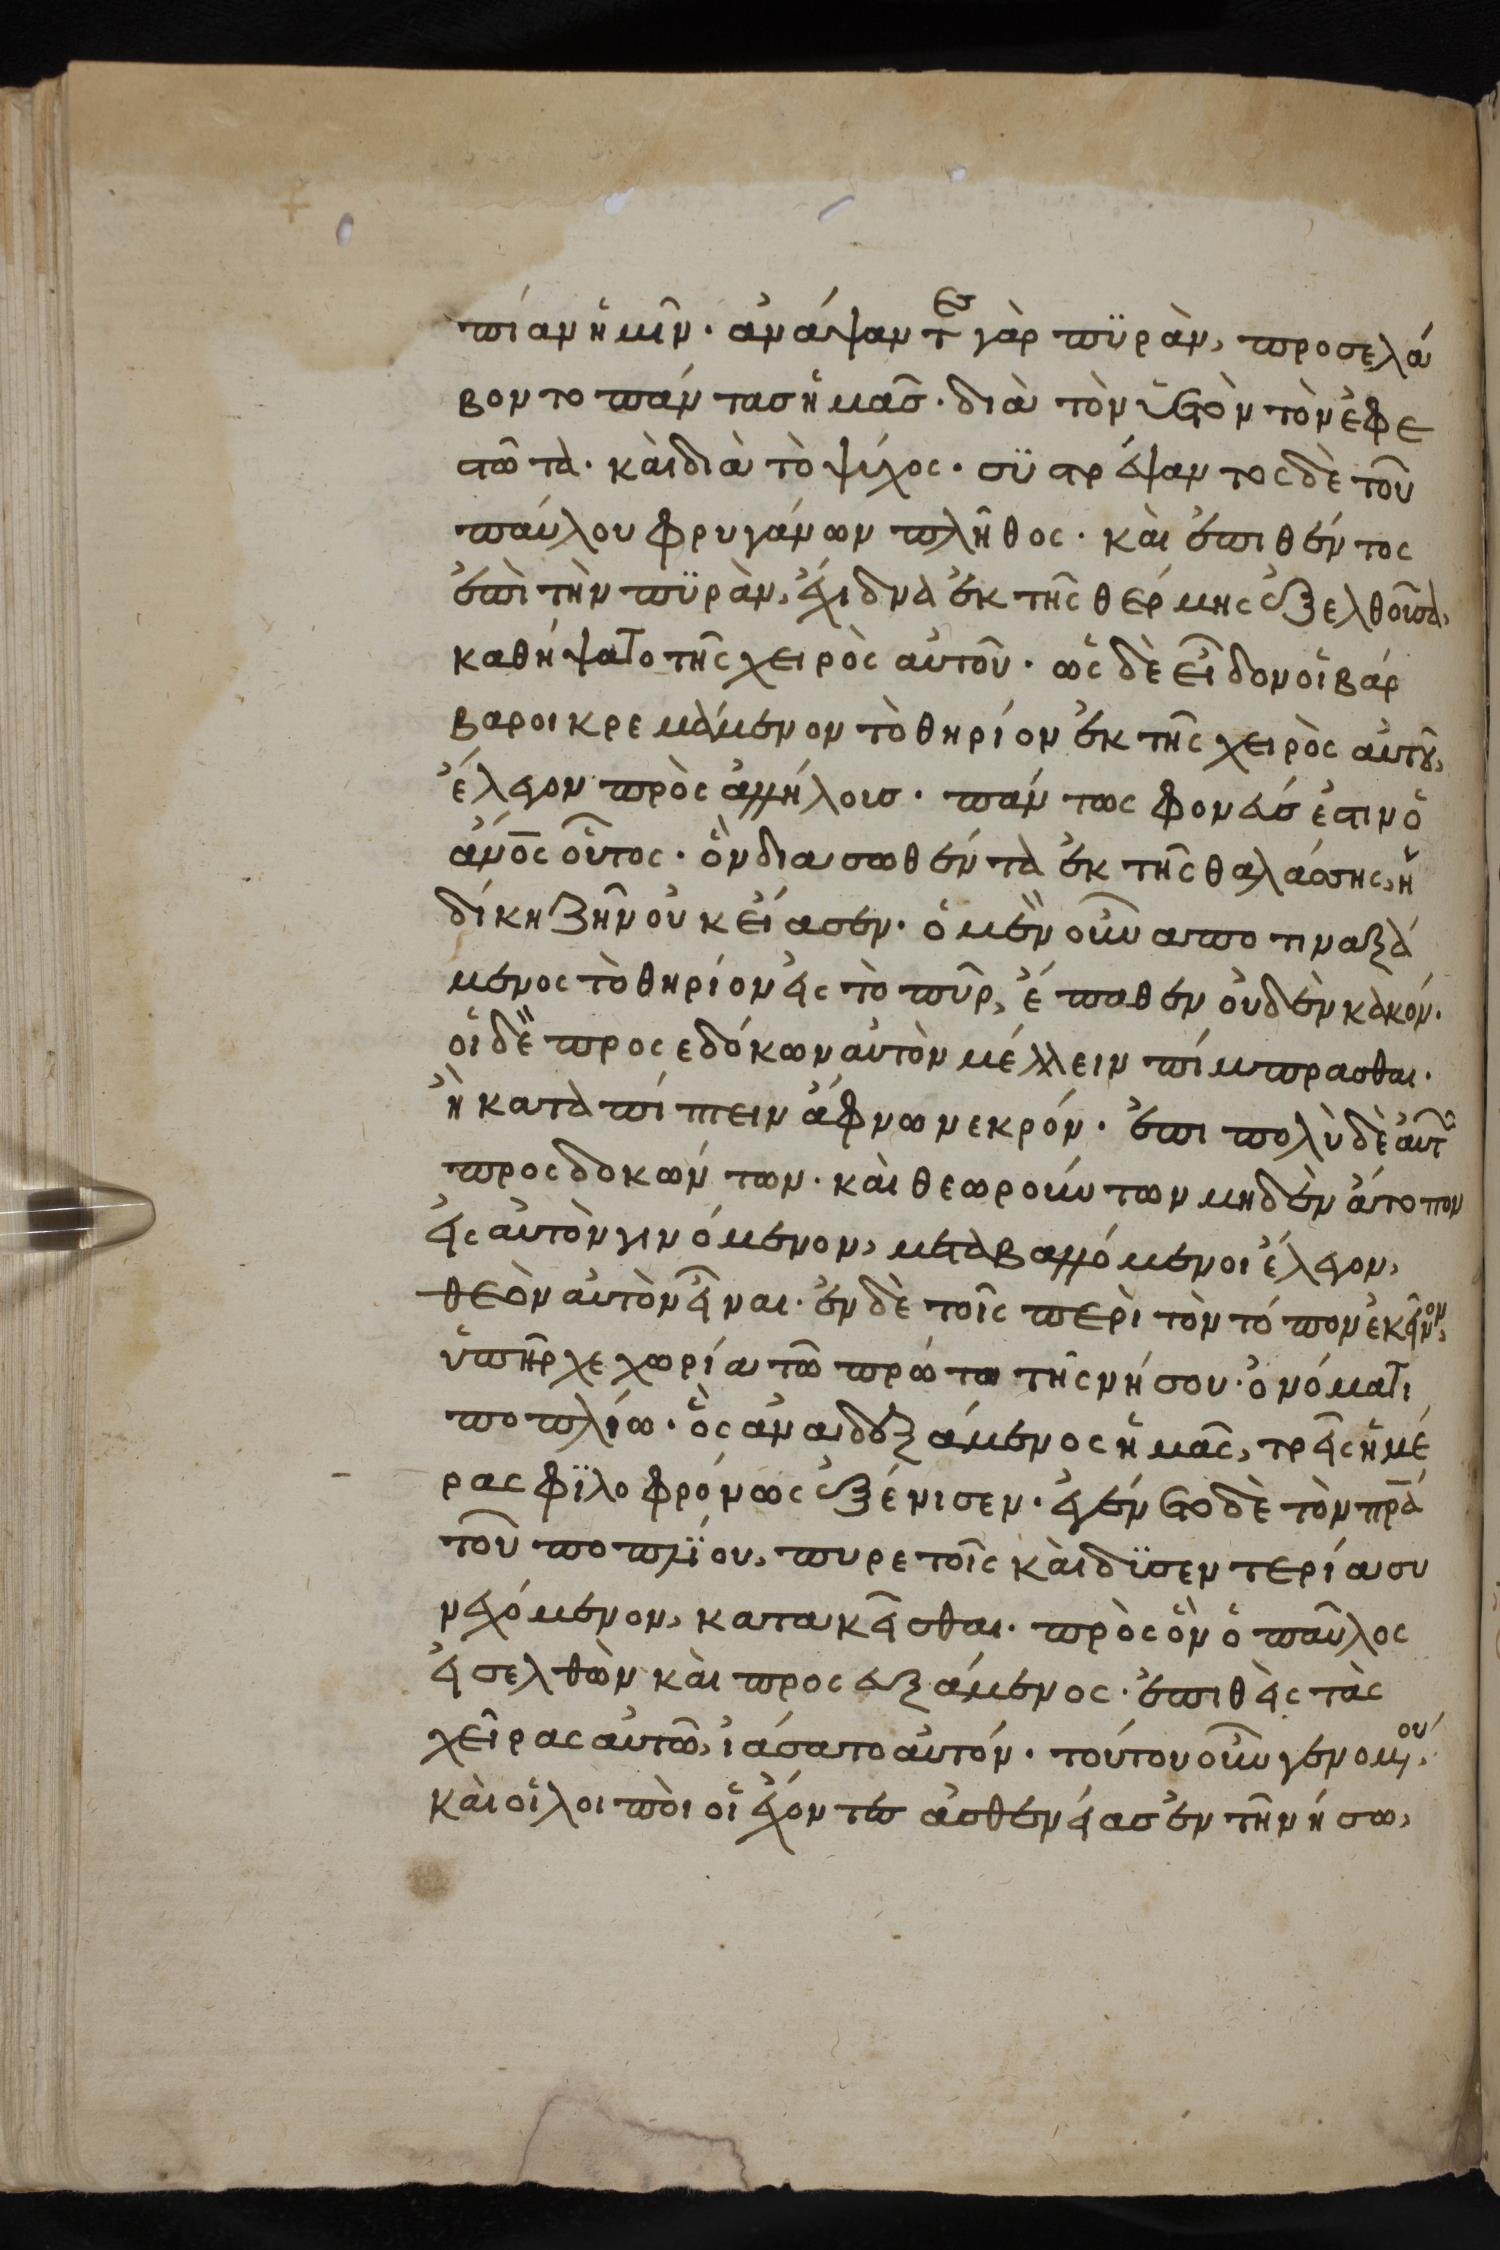 πίαν ἡμῖν· ἀνάψαντες γὰρ πϋρὰν, προσελά
βοντο πάντασ ἡμᾶσ· διὰ τὸν ὑετὸν τὸν ἐφε
στῶτα· καὶ διὰ τὸ ψύχος· σϋστρέψαντος δὲ τοῦ
παύλου φρυγάνων πλῆθος· καὶ ἐπιθέντος
ἐπὶ τὴν πϋρὰν, ἔχιδνα ἐκ τῆς θέρμης ἐξελθοῦσα,
καθήψατο τῆς χειρὸς αὐτοῦ· ὡς δὲ εἶδον οἱ βάρ
βαροι κρεμάμενον τὸ θηρίον ἐκ τῆς χειρὸς αὐτοῦ,
ἔλεγον πρὸς ἀλλήλουσ· πάντως φονεύσ ἐστιν ὁ
ἄνος οὗτος· ὃν διασωθέντα ἐκ τῆς θαλάσσης, ἡ
δίκη ζῆν οὐκ εἴασεν· ὁ μὲν οὖν αποτιναξά
μενος τὸ θηρίον εἰς τὸ πῦρ, ἔπαθεν οὐδὲν κακόν·
οἱ δὲ προςεδόκων αὐτὸν μέλλειν πίμπρασθαι·
ἢ καταπίπτειν ἄφνω νεκρόν· ἐπι πολὺ δὲ αὐτῶν
προςδοκώντων· καὶ θεωρούντων μηδὲν ἄτοπον
εἰς αὐτὸν γινόμενον, μεταβαλλόμενοι ἔλεγον,
θεὸν αὐτὸν εἶναι· ἐν δὲ τοῖς περὶ τὸν τόπον ἐκεῖνον,
ὑπῆρχε χωρία τῶ πρώτω τῆς νήσου· ὀνόματι
ποπλίω· ὃς ἀναδεξάμενος ἡμᾶς, τρεῖς ἡμέ
ρας φϊλοφρόνως ἐξένισεν· ἐγένετο δὲ τὸν πρα
τοῦ ποπλϊου, πυρετοῖς καὶ δϋσεντερία συ
νεχόμενον, κατακεῖσθαι· πρὸς ὃν ὁ παῦλος
εἰσελθὼν καὶ προςευξάμενος· ἐπιθεὶς τὰς
χεῖρας αὐτῶ, ἰάσατο αὐτόν· τούτου οὖν γενομένου,
καὶ οἱ λοιποὶ οἱ ἔχοντεσ ἀσθενείασ ἐν τῆ νήσω,